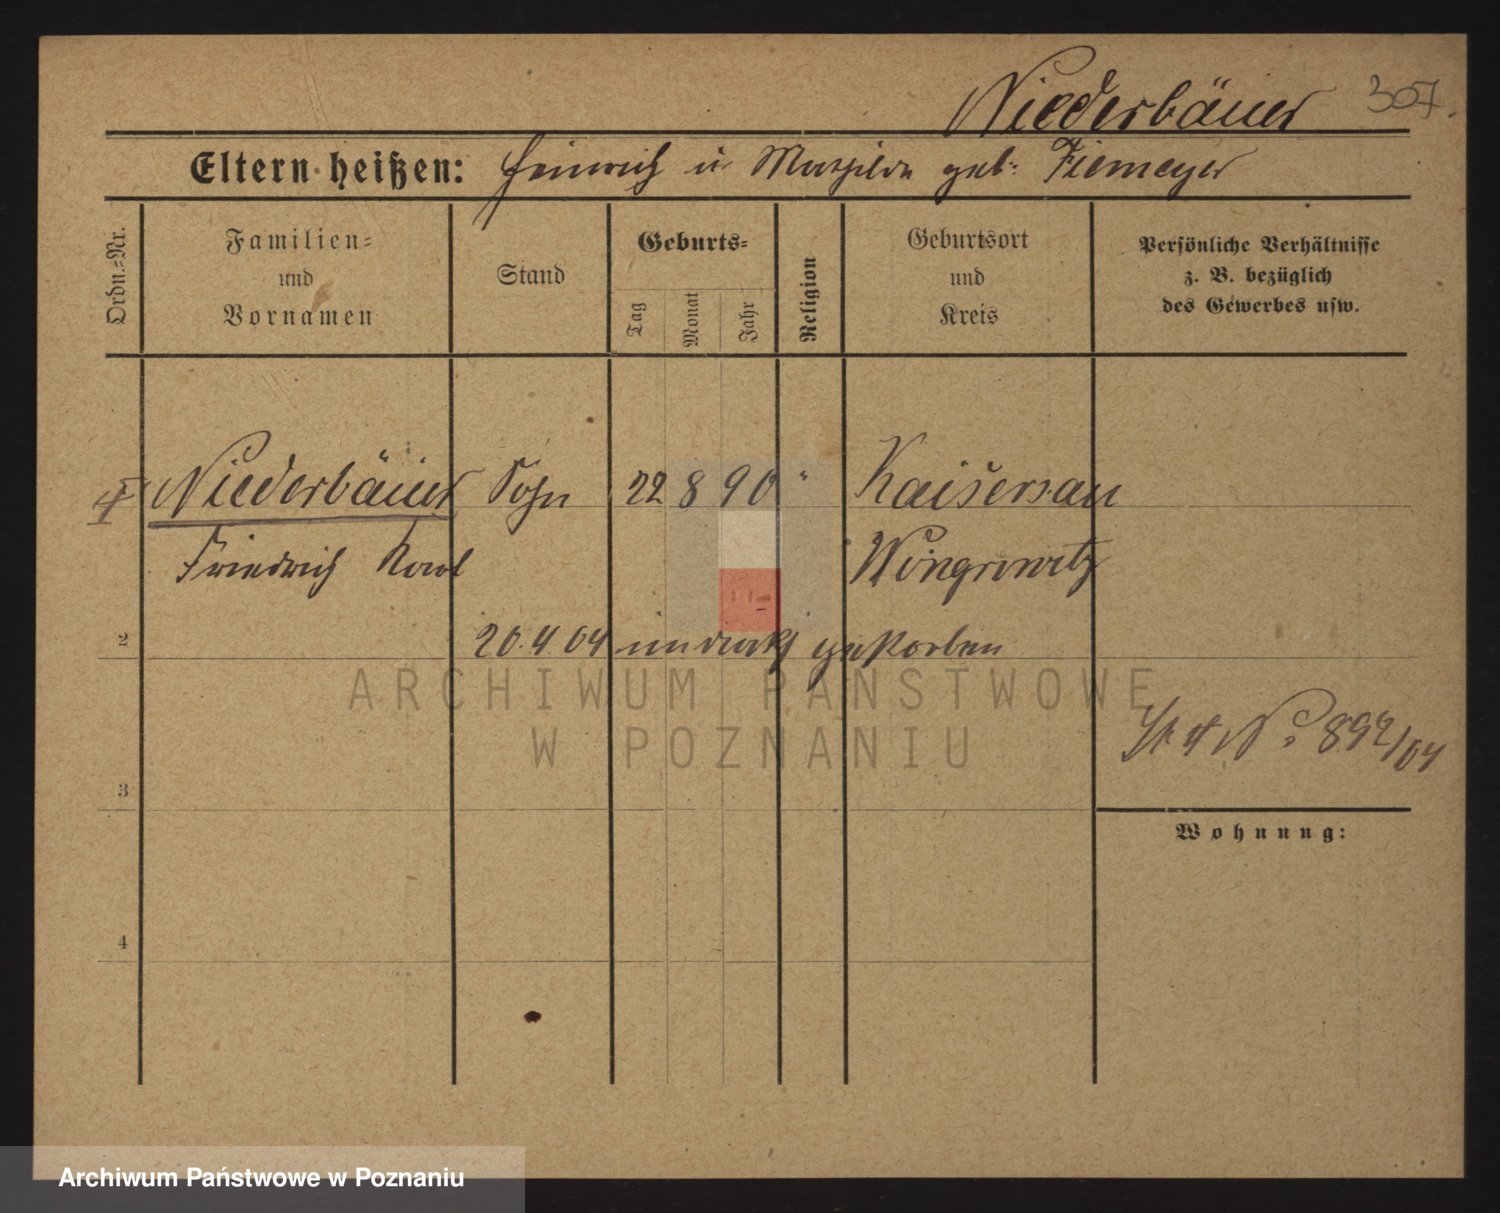 Niederbäuer 307.
Eltern heißen: Heinrich u Mathilde geb: Fiemeyer
Ordn.-Nr.
Familien-
und
Vornamen
Stand
Geburts-
Tag
Monat
Jahr
Religion
Geburtsort
und
Kreis
Persönliche Verhältnisse
z. B. bezüglich
des Gewerbes usw.
Niederbäuer Sohn 22 8 90 " Kaisersau
Friedrich Karl Wongrowitz
2 20.4 04 gestorben
3
ARCHIWUM PAŃSTWOWE
W POZNANIU
No 892/04
Wohnung:
4
Archiwum Państwowe w Poznaniu